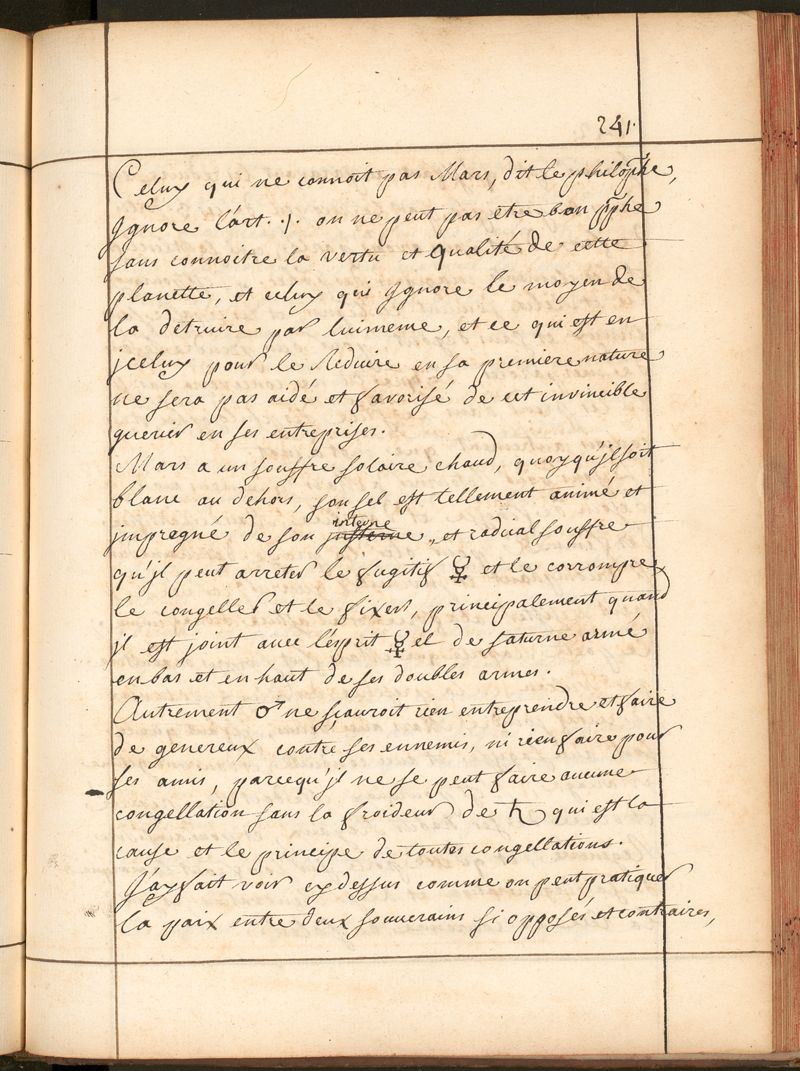 241.
Celuy qui ne connoit pas Mars, dit le philophe,
Jgnore l'art. ·/. on ne peut pas etre bon pphe
sans connoitre la vertu et qualité de cette
planette, et celuy qui Jgnore le moyen de
la detruire par luimeme, et ce qui est en
jceluy pour le Reduire en sa premiere nature
ne sera pas aidé et favorisé de cet invincible
guerier en ses entreprises.
Mars a un souffre solaire chaud, quoyqu'jl soit
blanc au dehors, son sel est tellement animé et
jmpregné de son interne, et radical souffre
qu'jl peut arreter le fugitif ☿ et le corrompre
le congeller et le fixer, principalement quand
jl est joint avec l'esprit ☿el de saturne armé
en bas et en haut de ses doubles armes.
Autrement ♂ ne sçauroit rien entreprendre et faire
de genereux contre ses ennemis, ni rien faire pour
ses amis, parcequ'jl ne se peut faire aucune
congellation sans la froideur de ♄ qui est la
cause et le principe de toutes congellations.
J'ay fait voir cy dessus comme on peut pratiquer
la paix entre deux souverains si opposés et contraires,